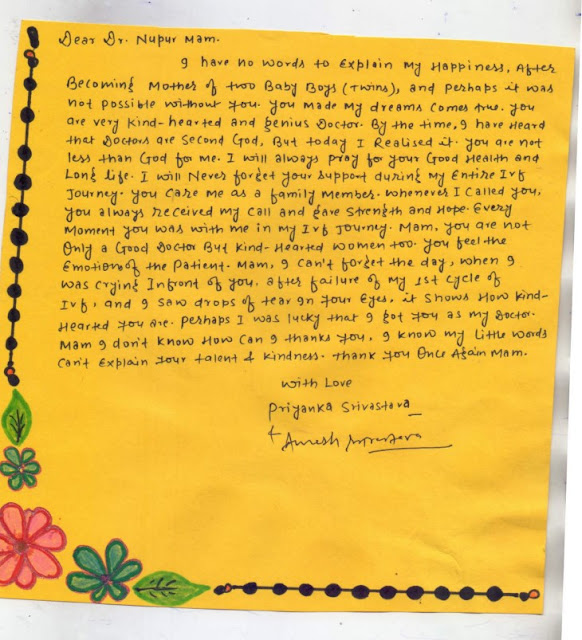 Dear Dr. Nupur Mam.
I have no words to Explain My Happiness, After
Becoming Mother of two Baby Boys (Twins), and perhaps it was
not possible without you. you made my dreams comes true. you
are very kind-hearted and genius Doctor. By the time, I have Heard
that Doctors are Second God, But today I Realised it. you are not
less than God for me. I will always pray for your Good Health and
Long life. I will Never forget your support during my Entire Ivf
Journey. you care me as a family member. whenever I Called you,
you always received my call and gave Strength and Hope. Every
Moment you was with me in my Ivf Journey. Mam, you are not
Only a Good Doctor But kind-Hearted women too. you feel the
Emotion of the Patient. Mam, I can't forget the day, when I
was crying Infront of you, after failure of my 1st cycle of
Ivf, and I saw drops of tear In your Eyes, it shows How kind-
Hearted you are. perhaps I was lucky that I got you as my Doctor.
Mam I don't know How can I thanks you, I know my little words
can't Explain your talent & kindness. thank you Once Again Mam.
with Love
Priyanka Srivastava
&